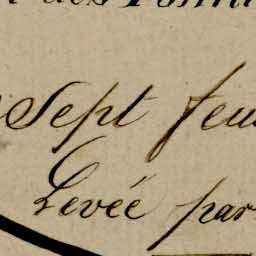 Sept feu
Levée par